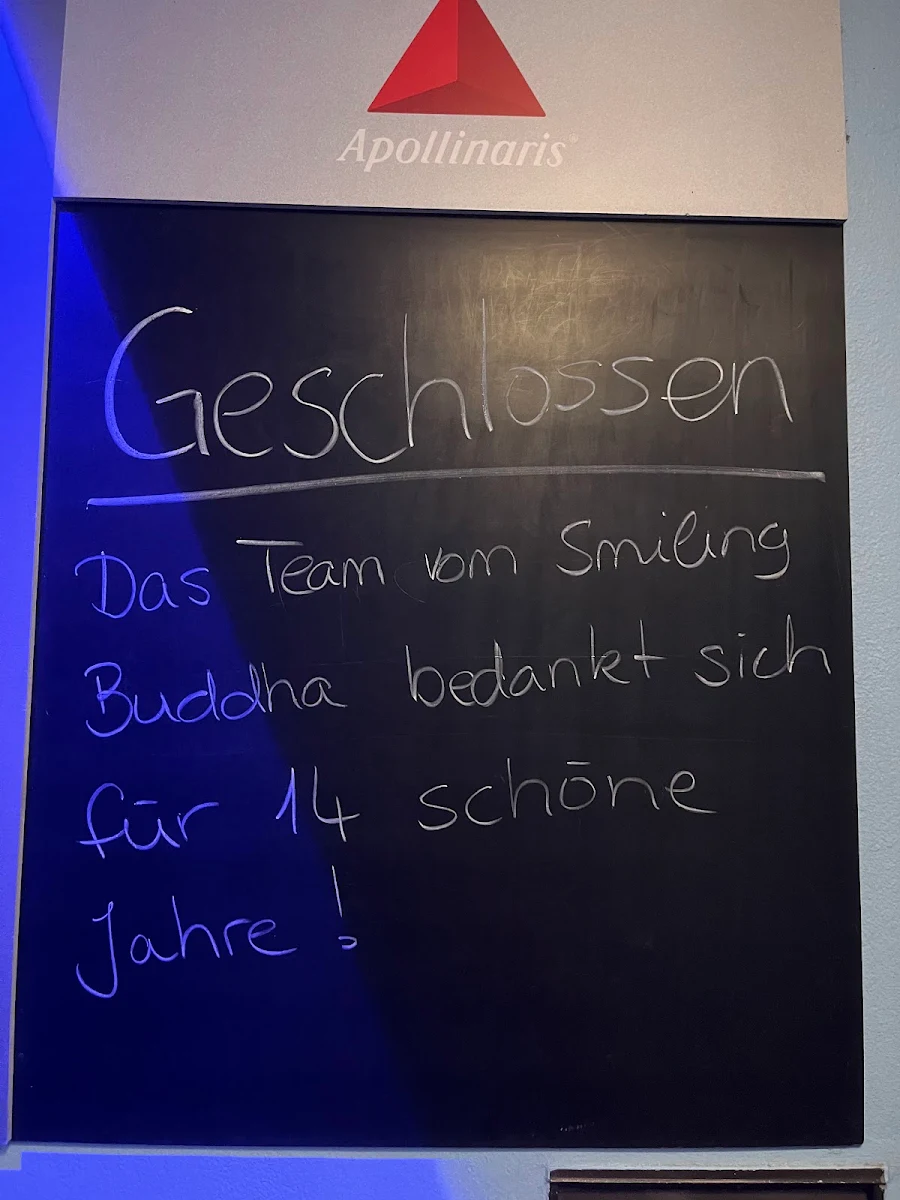 Apollinaris
Geschlossen
Das Team vom Smiling
Buddha bedankt sich
für 14 schöne
Jahre!